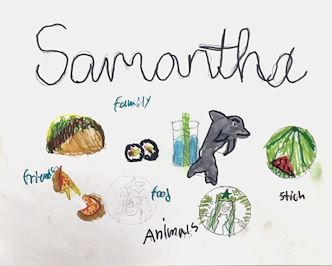 Samantha
family
friends
food
stich
Animals